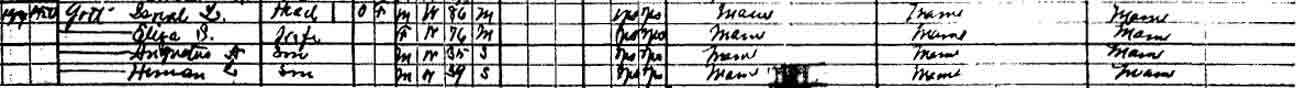 Gott Isreal L. Head 1 O F M W 86 M Yes Yes Maine Maine Maine
— Eliza B. Wife F W 76 M Yes Yes Maine Maine Maine
— Augustus A Son M W 35 S Yes Yes Maine Maine Maine
— Herman L Son M W 39 S Yes Yes Maine Maine Maine